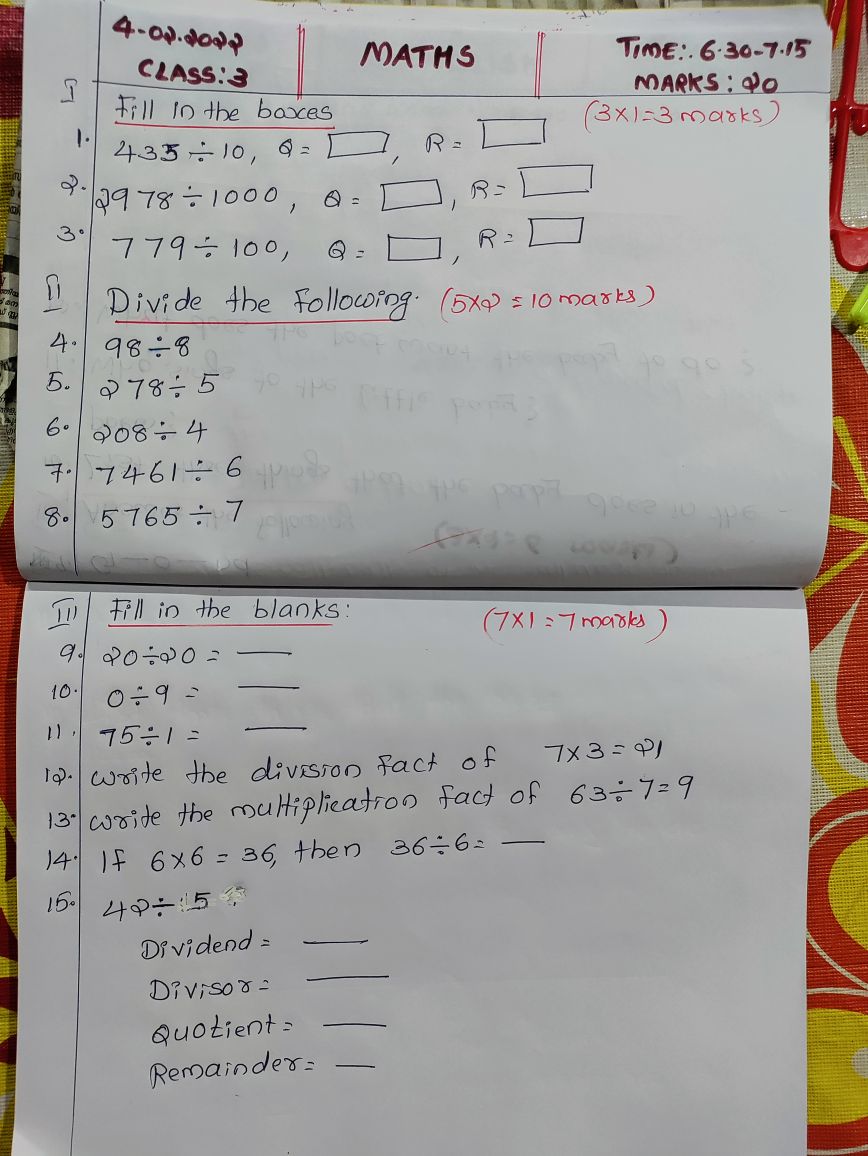 4-02.2022 MATHS TIME:. 6.30-7.15
CLASS:3 MARKS: 20
I Fill in the boxes (3x1=3 marks)
1. 435÷10, Q = , R =
2. 2978÷1000, Q = , R =
3. 779÷100, Q = , R =
II Divide the following. (5x2=10 marks)
4. 98÷8
5. 278÷5
6. 208÷4
7. 7461÷6
8. 5765÷7
III Fill in the blanks: (7x1=7 marks)
9. 20÷20 =
10. 0÷9 =
11. 75÷1 =
12. Write the division fact of 7x3=21
13. Write the multiplication fact of 63÷7=9
14. If 6x6=36, then 36÷6=
15. 42÷5
Dividend =
Divisor =
Quotient =
Remainder =